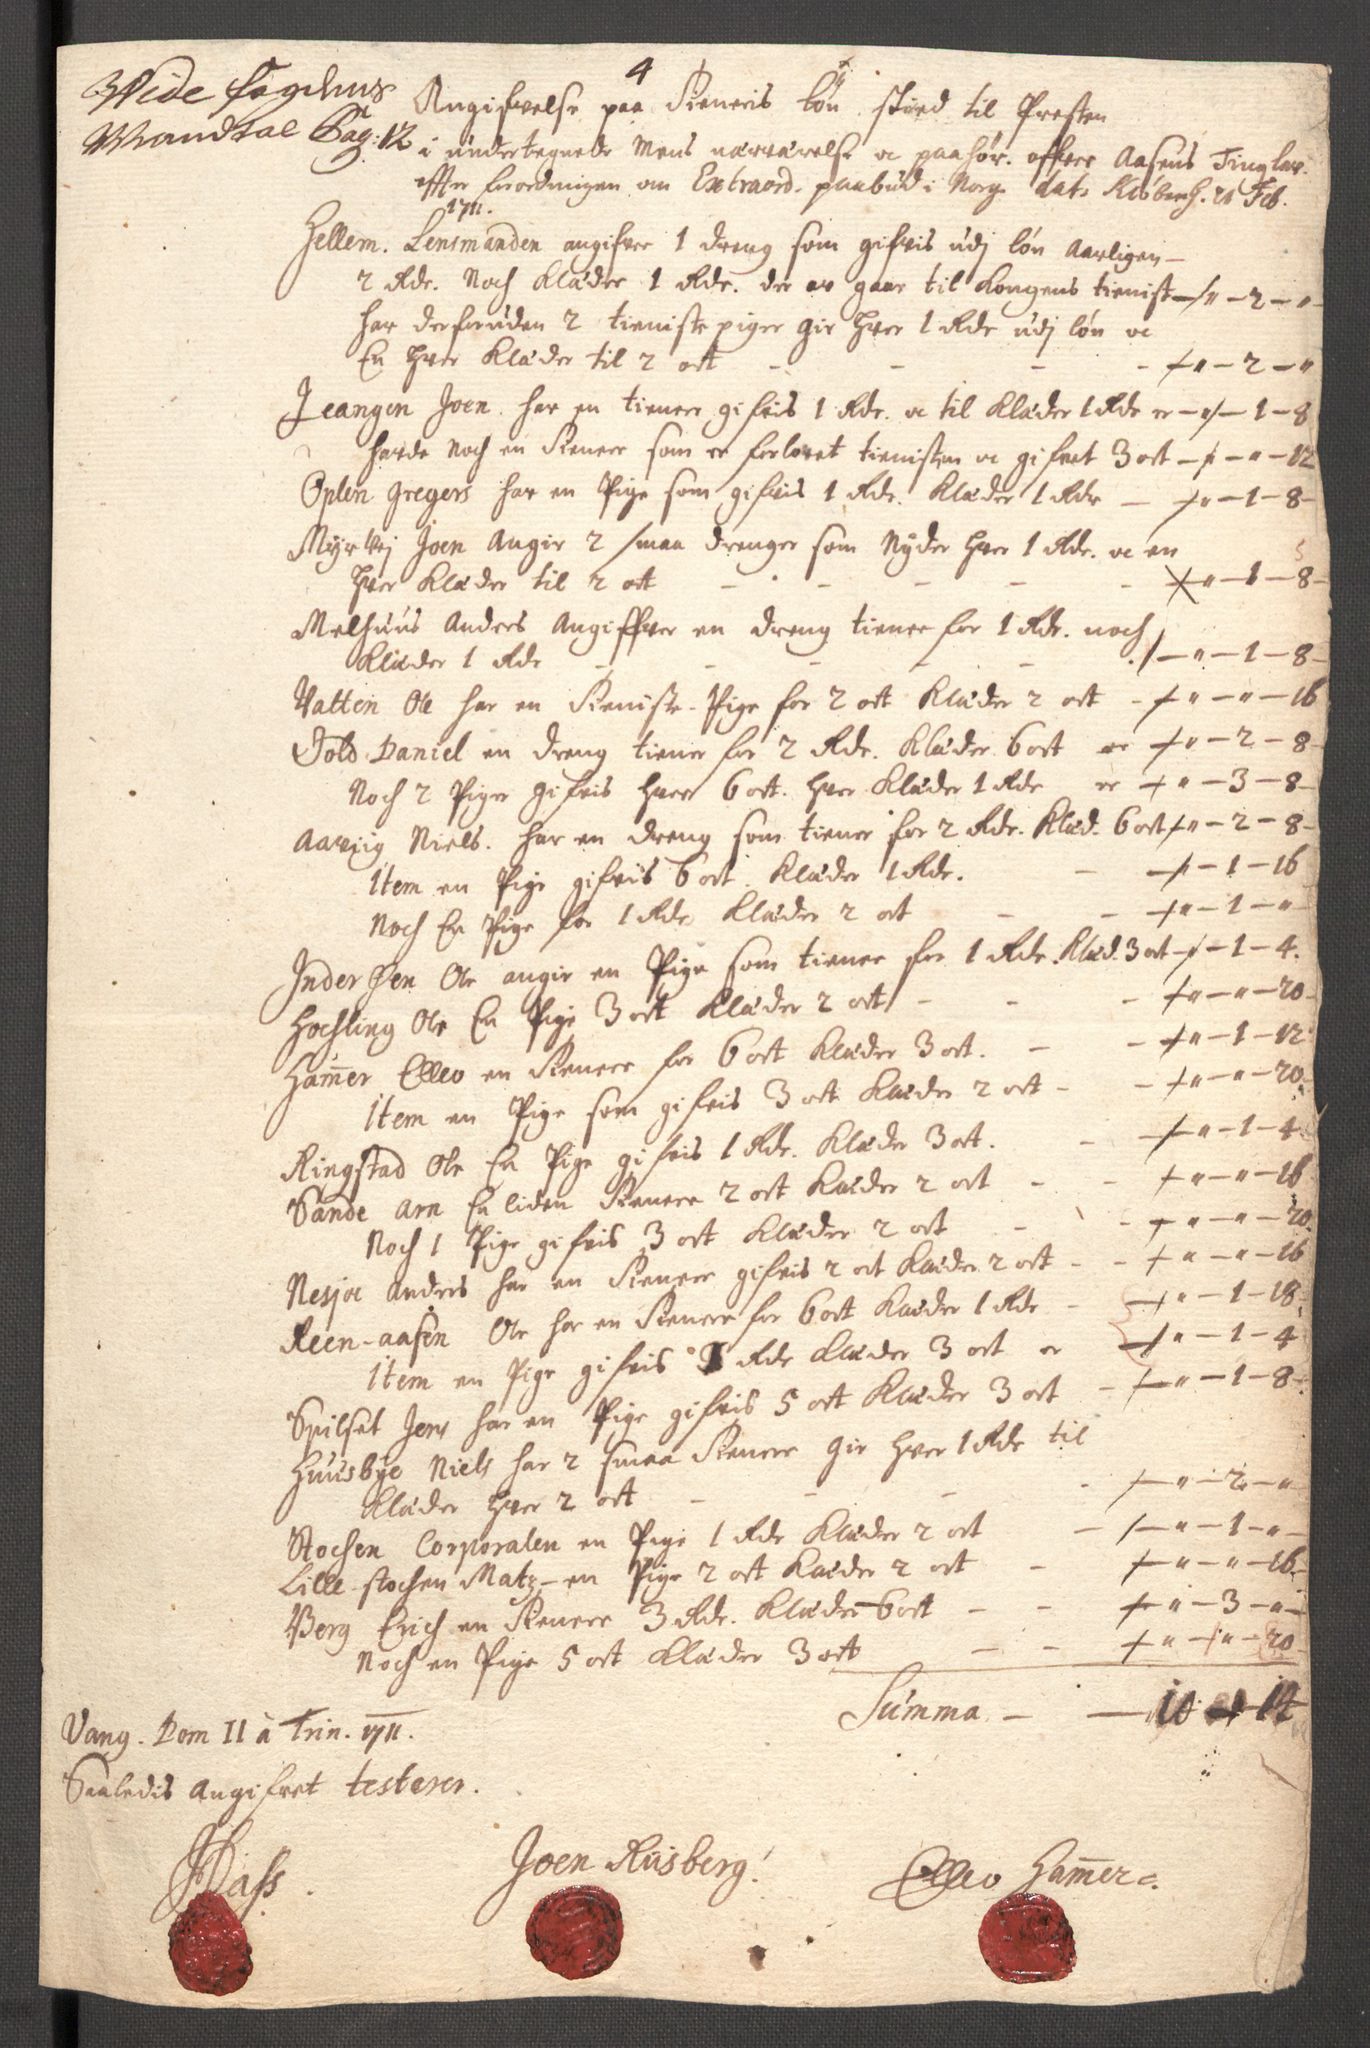 4
Vide fogdens
Mandtal Pag: 12
Angifvelse paa Tieneris løn skeed til Presten
i undertegnede Mens nærværelse oc paahør. offver Aasens Tinglav.
effter forordningen om Extraord. paabud i Norge dat. Kiøbenh. 21 Feb.
1711.
Hellem. Lensmanden angifver 1 dreng som gifvis udj løn Aarligen
2 Rdr. Noch Klæder 1 Rdr. der av gaar til Kongens tieniste - " - 2 - "
har derforuden 2 tieniste piger gir hver 1 Rdr udj løn oc
En hver Klæder til 2 ort - - - - " - 2 - "
Leangen Joen har en tienere gifvis 1 Rdr. oc til Klæder 1 Rdr er - " - 1 - 8
hafde Noch en Tienere som er forlovet tienisten oc gifvet 3 ort - " - " - 12
Oplen Gregers har en Pige som gifvis 1 Rdr. Klæder 1 Rdr - " - 1 - 8
Myr Joen Angir 2 smaa drenger som Nyder hver 1 Rdr. oc en
hver Klæder til 2 ort - - - - " - 1 - 8
Melhuus Anders Angiffver en dreng tiener for 1 Rdr. noch
Klæder 1 Rdr - - - - " - 1 - 8
Vatten Ole har en Tieniste-Pige for 2 ort Klæder 2 ort - " - " - 16
Fold Daniel en dreng tiener for 2 Rdr. Klæder 6 ort er - " - 2 - 8
Noch 2 Piger gifvis hver 6 ort. hver Klæder 1 Rdr er - " - 3 - 8
Aavjig Niels. har en dreng som tiener for 2 Rdr. Klæd. 6 ort - " - 2 - 8
Item en Pige gifvis 6 ort Klæder 1 Rdr. - - 1 - 16
Noch En Pige for 1 Rdr Klæder 2 ort - - " - 1 - "
Inder Ole angir en Pige som tiener for 1 Rdr. Klæd. 3 ort - 1 - 4.
Hochling Ole En Pige 3 ort Klæder 2 ort - - - " - " - 20
Ham̄er Elleo en Tienere for 6 ort Klæder 3 ort. - - " - 1 - 12
Item en Pige som gifvis 3 ort Klæder 2 ort - - " - " - 20
Ringstad Ole En Pige gifvis 1 Rdr. Klæder 3 ort. - " - 1 - 4
Sande Arn En liden Tienere 2 ort Klæder 2 ort - - " - " - 16
Noch 1 Pige gifvis 3 ort Klæder 2 ort - - " - " - 20
Nesjoe Anders har en Tienere gifvis 2 ort Klæder 2 ort - - " - " - 16
Reen-aasen Ole har en Tienere for 6 ort Klæder 1 Rdr - " - 1 - 18
Item en Pige gifvis 1 Rdr Klæder 3 ort er " - 1 - 4
Spilset Jens har en Pige gifvis 5 ort Klæder 3 ort - " - 1 - 8
Huusbye Niels har 2 smaa Tienere gir hver 1 Rdr til
Klæder hver 2 ort - - - - " - 2 - "
Stochen Corporalen en Pige 1 Rdr Klæder 2 ort - " - 1 - "
Lille stochen Matz - en Pige 2 ort Klæder 2 ort - " - " - 16
Berg Erich en Tienere 3 Rdr. Klæder 6 ort - - " - 3 - "
Noch en Pige 5 ort Klæder 3 ort - - " - " - 20
Summa - -
Vang. Dom 11 à Trin. 1711.
Saaledis angifvet testerer.
Dass. Joen Rusberg. Elleo Ham̄er.